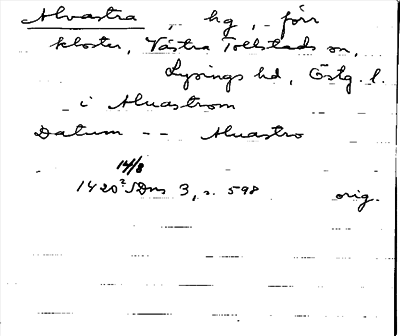 Alvastra, hg, förr
kloster, Västra Tollstads sn,
Lysings hd, Östg. l.
i Aluastrom
Datum -- Aluastro
14/8
1420 SDns 3, s. 598 orig.